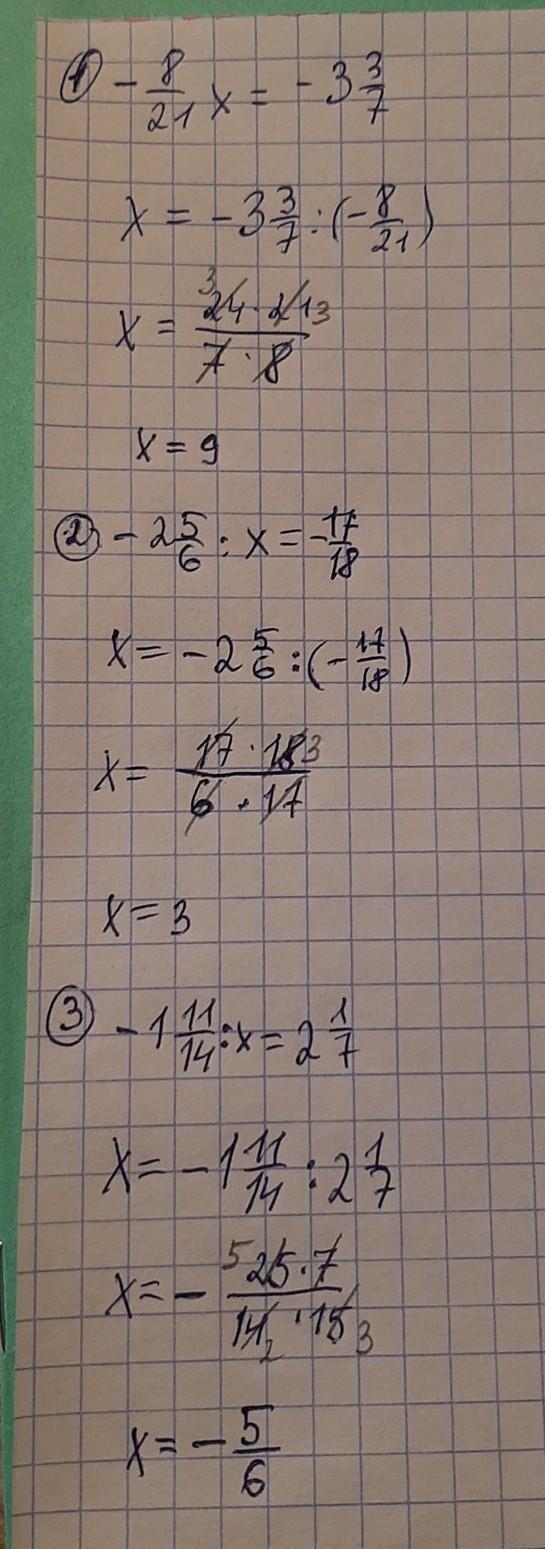 ① -8/21 x = -3 3/7
x = -3 3/7 : (-8/21)
x = 3 24 · 21 3 / 7 · 8
x = 9
② -2 5/6 : x = -17/18
x = -2 5/6 : (-17/18)
x = 17 · 18 3 / 6 · 17
x = 3
③ -1 11/14 : x = 2 1/7
x = -1 11/14 : 2 1/7
x = - 5 25 · 7 / 14 2 · 15 3
x = -5/6